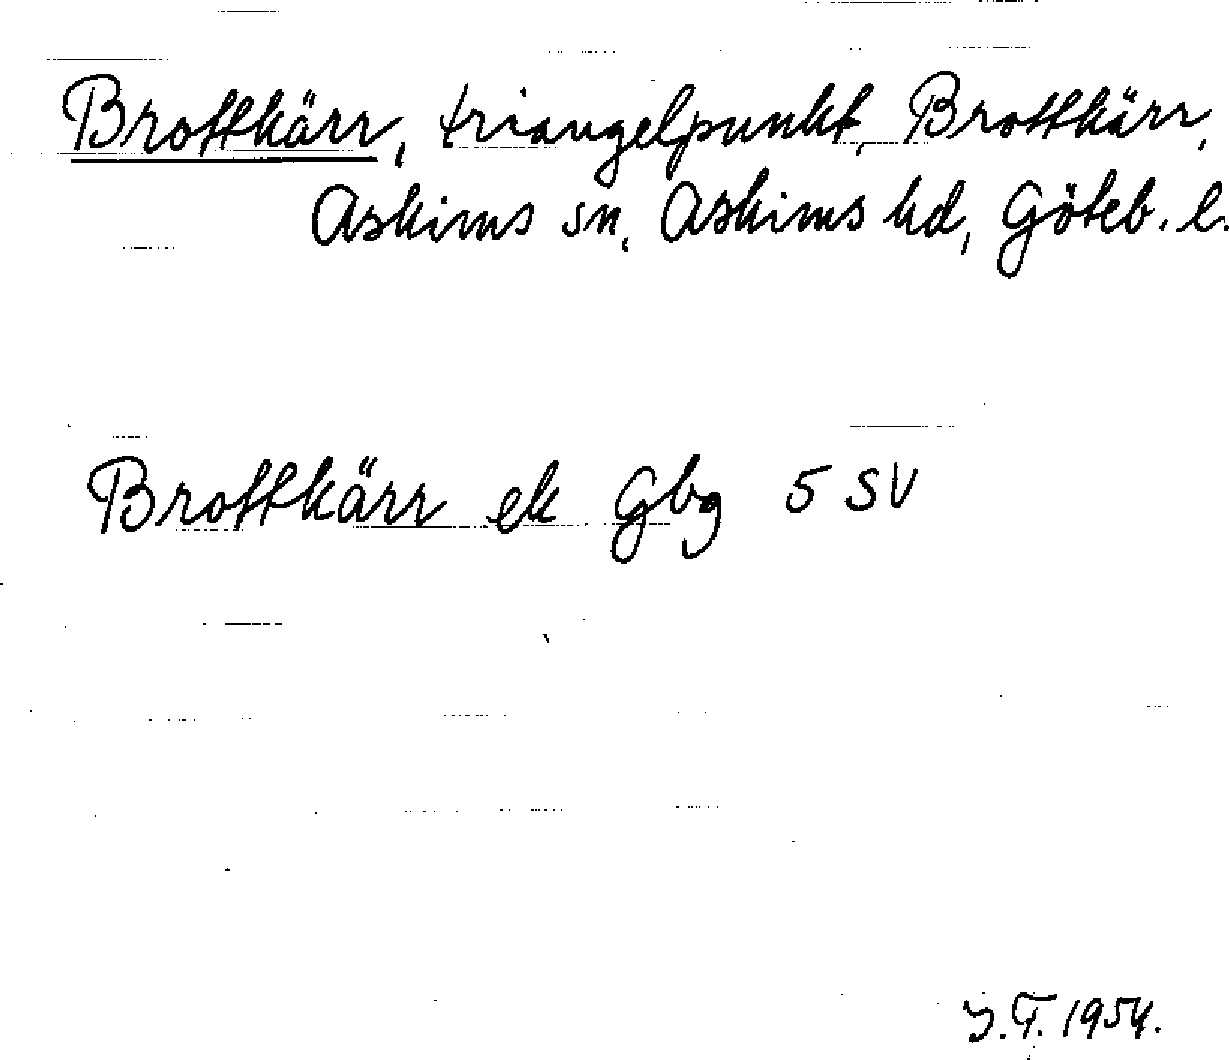 Brottkärr, triangelpunkt, Brottkärr,
Askims sn, Askims hd, Göteb. l.
Brottkärr ek Gbg 5 SV
J.T. 1954.